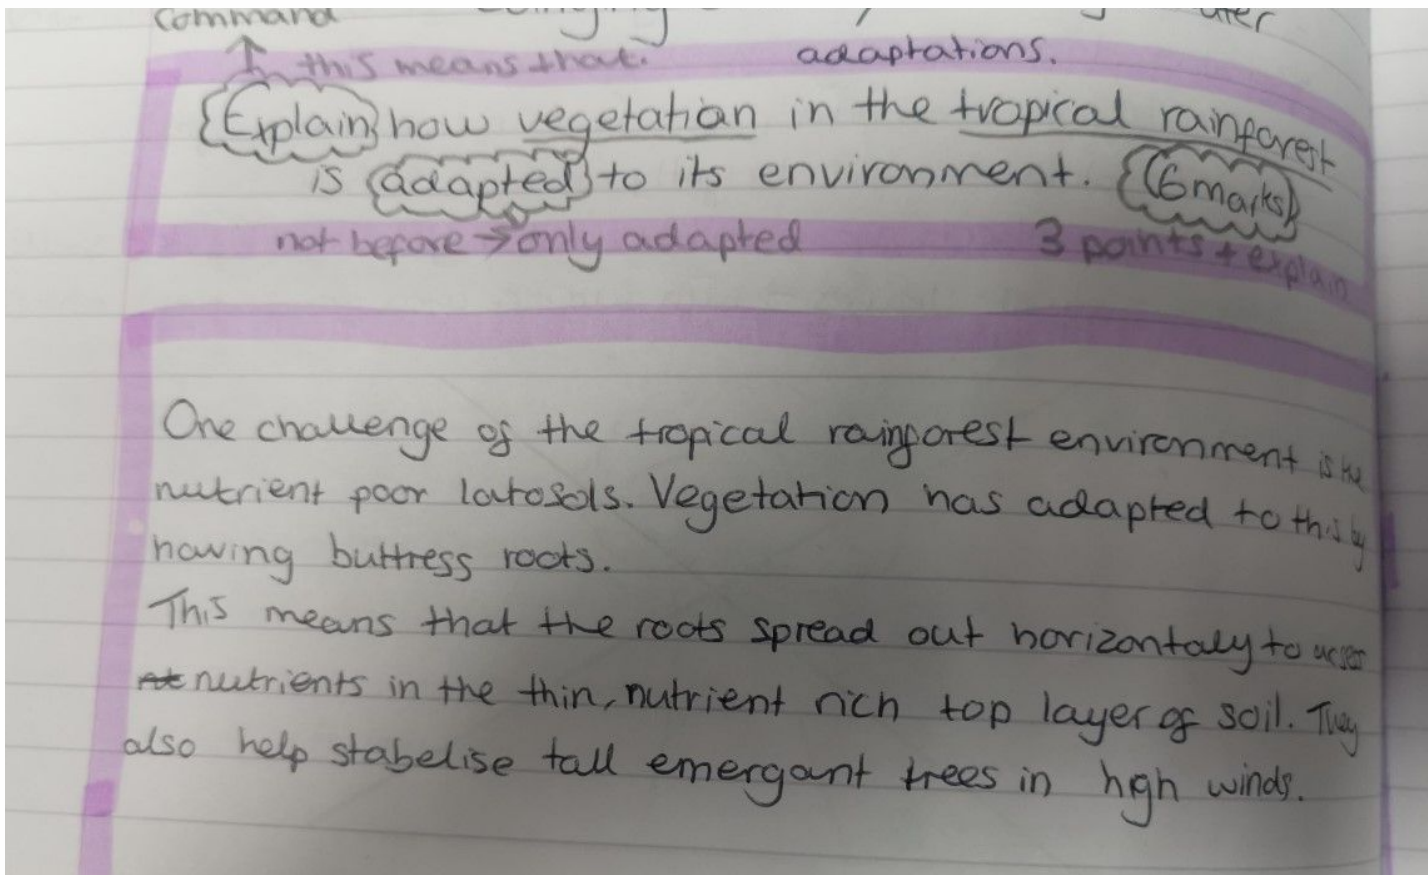 Command
adaptations.
this means that.
Explain how vegetation in the tropical rainforest
is adapted to its environment. (6 marks)
not before → only adapted 3 points + explain
One challenge of the tropical rainforest environment is the
nutrient poor latosols. Vegetation has adapted to this by
having buttress roots.
This means that the roots spread out horizontaly to
nutrients in the thin, nutrient rich top layer of soil. They
also help stabelise tall emergant trees in high winds.